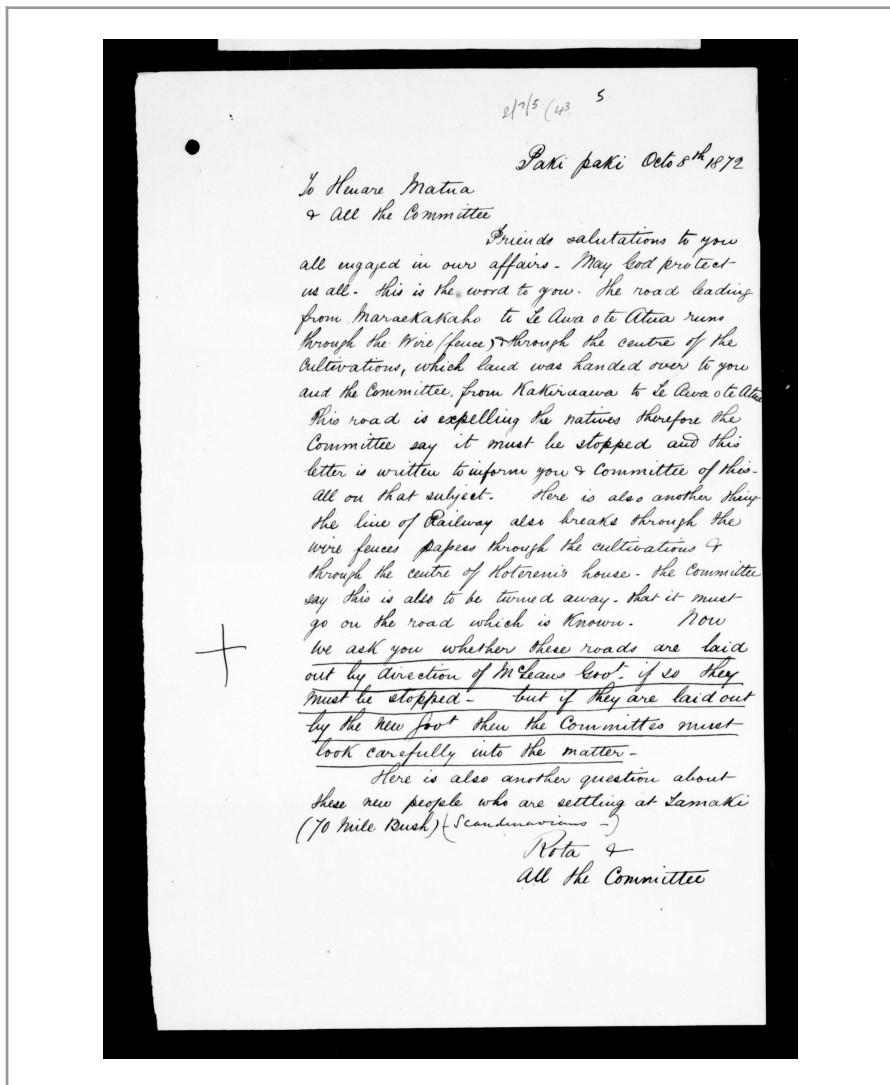 2/7/5 (43
5
Paki paki Octo 8th 1872
To Henare Matua
& All the Committee
Friends salutations to you
all engaged in our affairs - May God protect
us all - this is the word to you - the road leading
from Maraekakaho to Te Awa o te Atua runs
through the Wire (fence) & through the centre of the
Cultivations, which land was handed over to you
and the Committee, from Kakiraawa to Te Awa o te Atua
This road is expelling the natives therefore the
Committee say it must be stopped and this
letter is written to inform you & Committee of this -
All on that subject. Here is also another thing
the line of Railway also breaks through the
wire fences passes through the cultivations &
through the centre of Hoterenis house - the Committee
say this is also to be turned away - that it must
go on the road which is Known - Now
we ask you whether these roads are laid
out by direction of McLeans Govt. if so they
must be stopped - but if they are laid out
by the new Govt then the Committee must
look carefully into the matter -
Here is also another question about
these new people who are settling at Tamaki
(70 Mile Bush) (Scandinavians -)
Rota &
All the Committee